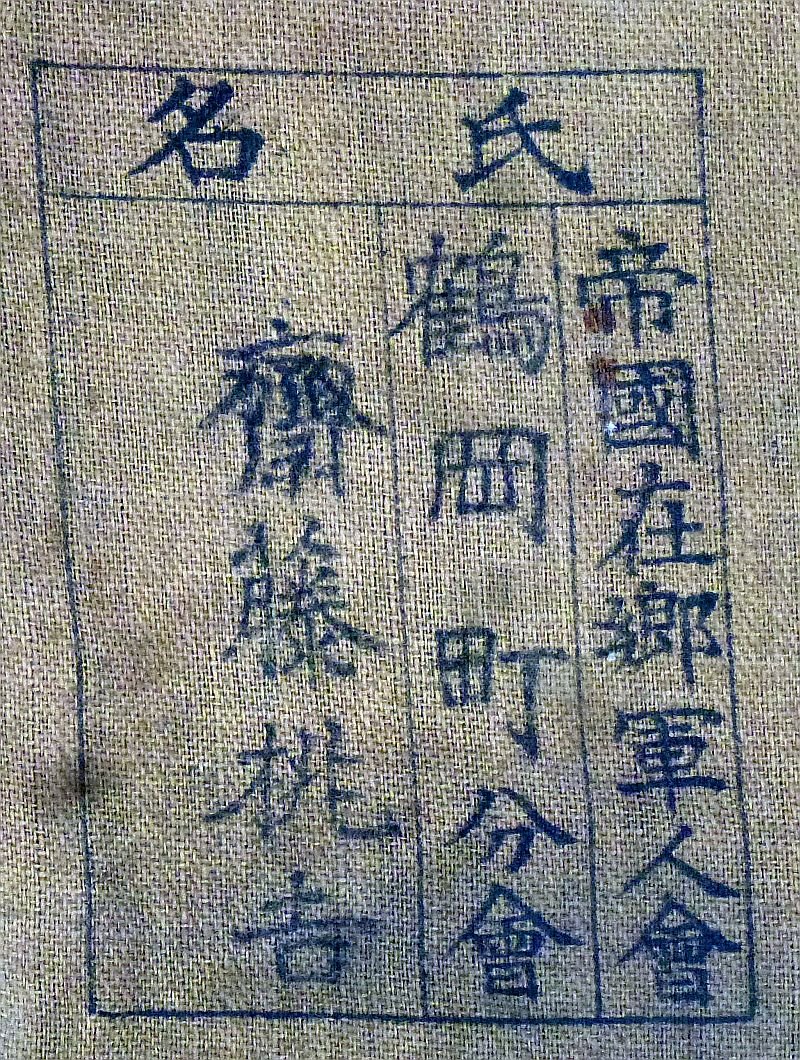 氏名
帝國在鄉軍人會
鶴岡町分會
齋藤桃吉